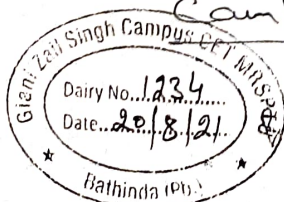 Giani Zail Singh Campus CET MRSPTU
Dairy No. 1234
Date 20/8/21
Bathinda (Pb.)